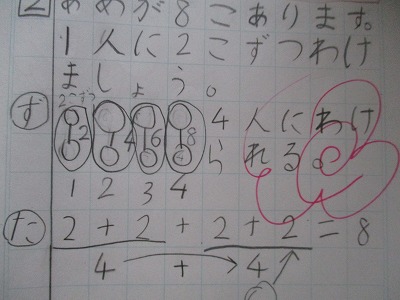 2 あめが8こあります。
1人に2こずつわけ
ましょう。
2こずつ
ず 2 4 6 8 4人にわけ
られる。
1 2 3 4
た 2+2+2+2=8
4 → + → 4